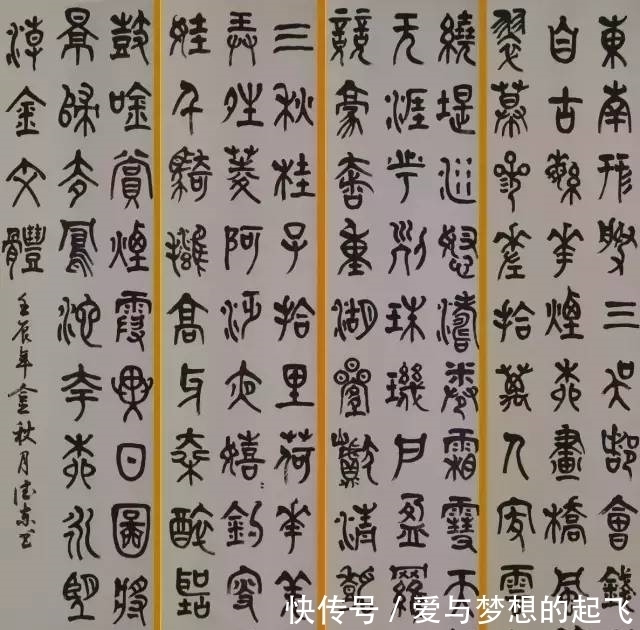 東南形勝三吳都會錢
自古繁華煙柳畫橋風
翠幕參差拾萬人家雲
繞堤沙怒濤卷霜雪天
无涯市列珠璣戶盈羅
競豪奢重湖疊巘清嘉
三秋桂子拾里荷華羌
弄晴菱歌泛夜嬉釣叟
娃千騎擁高牙乘醉聽
鼓唫賞煙霞異日圖將
景歸去鳳池夸柳永望
潮金文體
壬辰年金秋月
快传号 / 爱与梦想的起飞